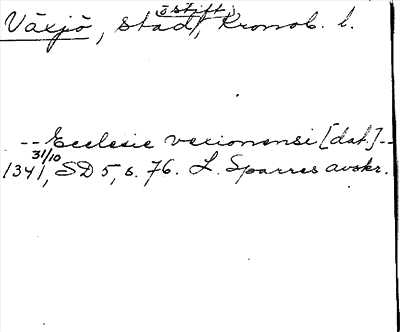 Växjö, stad (o stift), Kronob. l.
-- Ecclesie vexionensi [dat.] --
31/10 1341, SD 5, s. 76. L. Sparres avskr.